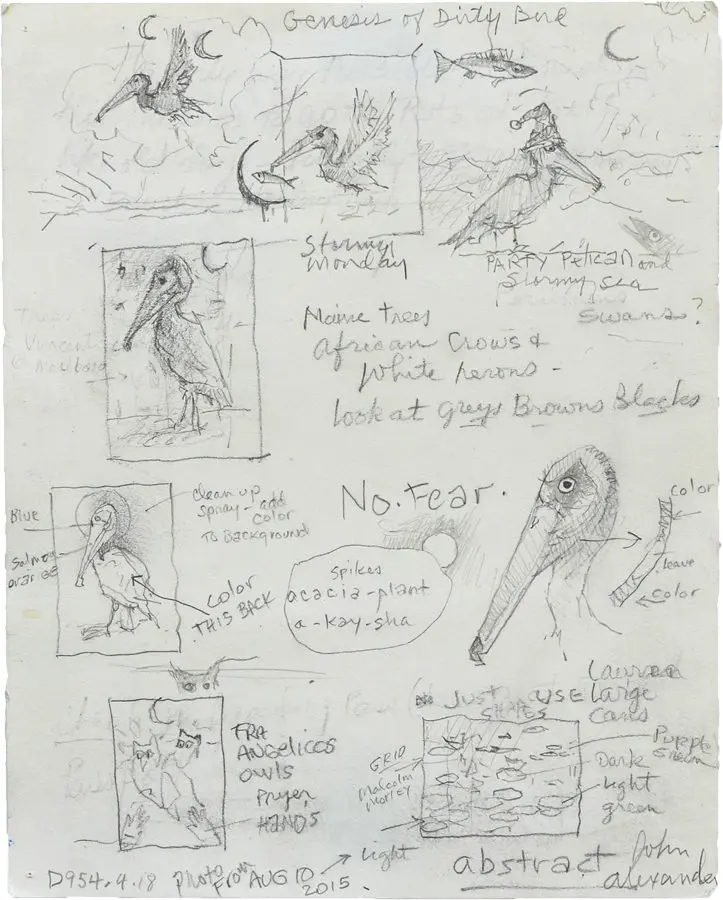 Genesis of Dirty Bird
Stormy
Monday
PARTY Pelican and
Stormy sea
Swans?
Trees
Vincent
Maine trees
African Crows &
White herons -
Look at Greys Browns Blacks
Blue
Salmon
orange
clean up
spray - add
color
TO Background
color
THIS BACK
No. Fear.
spikes
acacia-plant
a-kay-sha
color
leave
color
FRA
ANGELICOS
owls
Prayer
HANDS
JUST USE
SHAPES
Large
cans
GRID
Malcolm
Morley
Purple
Green
Dark
Light
green
Light
abstract
John
Alexander
D954.4.18 photo From AUG 10
2015.